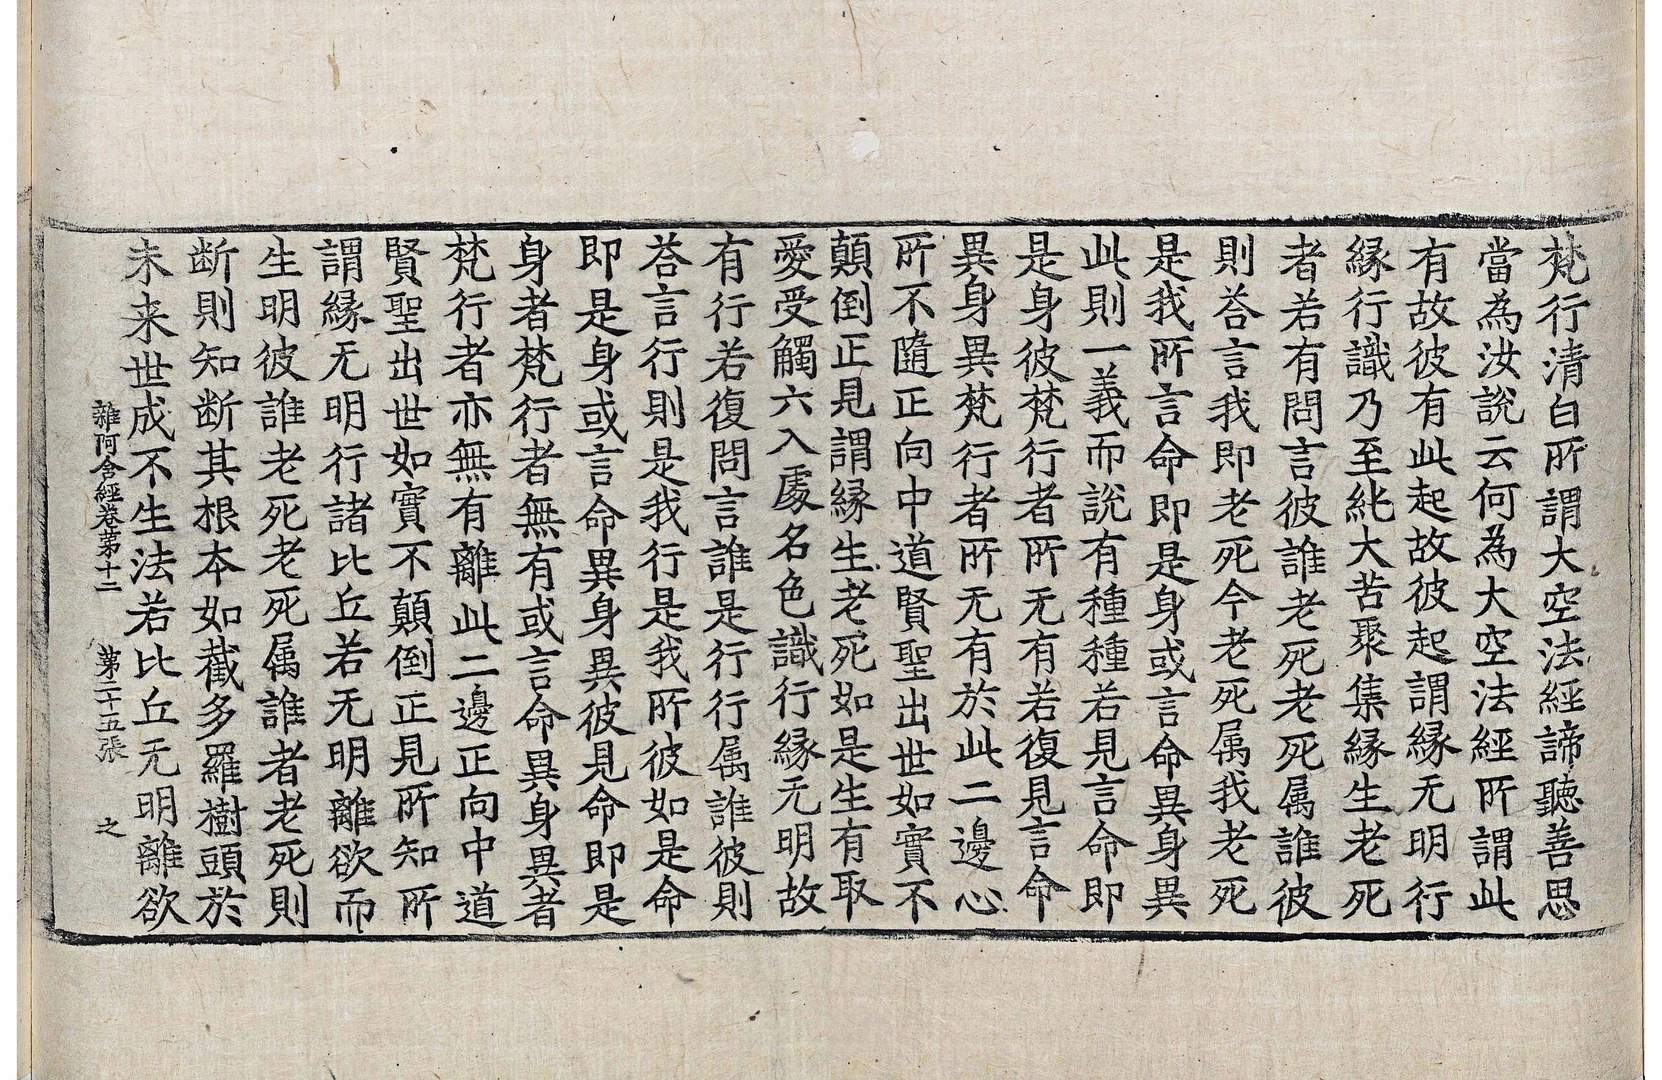 梵行清白所謂大空法經諦聽善思
當為汝說云何為大空法經所謂此
有故彼有此起故彼起謂縁无明行
縁行識乃至純大苦聚集縁生老死
者若有問言彼誰老死老死属誰彼
則荅言我即老死今老死属我老死
是我所言命即是身或言命異身異
此則一義而說有種種若見言命即
是身彼梵行者所无有若復見言命
異身異梵行者所无有於此二邊心
所不隨正向中道賢聖出世如實不
顛倒正見謂縁生老死如是生有取
愛受觸六入處名色識行縁无明故
有行若復問言誰是行行属誰彼則
荅言行則是我行是我所彼如是命
即是身或言命異身異彼見命即是
身者梵行者無有或言命異身異者
梵行者亦無有離此二邊正向中道
賢聖出世如實不顛倒正見所知所
謂縁无明行諸比丘若无明離欲而
生明彼誰老死老死属誰者老死則
断則知断其根本如截多羅樹頭於
未来世成不生法若比丘无明離欲
雜阿含經卷第十二 第二十五張 之